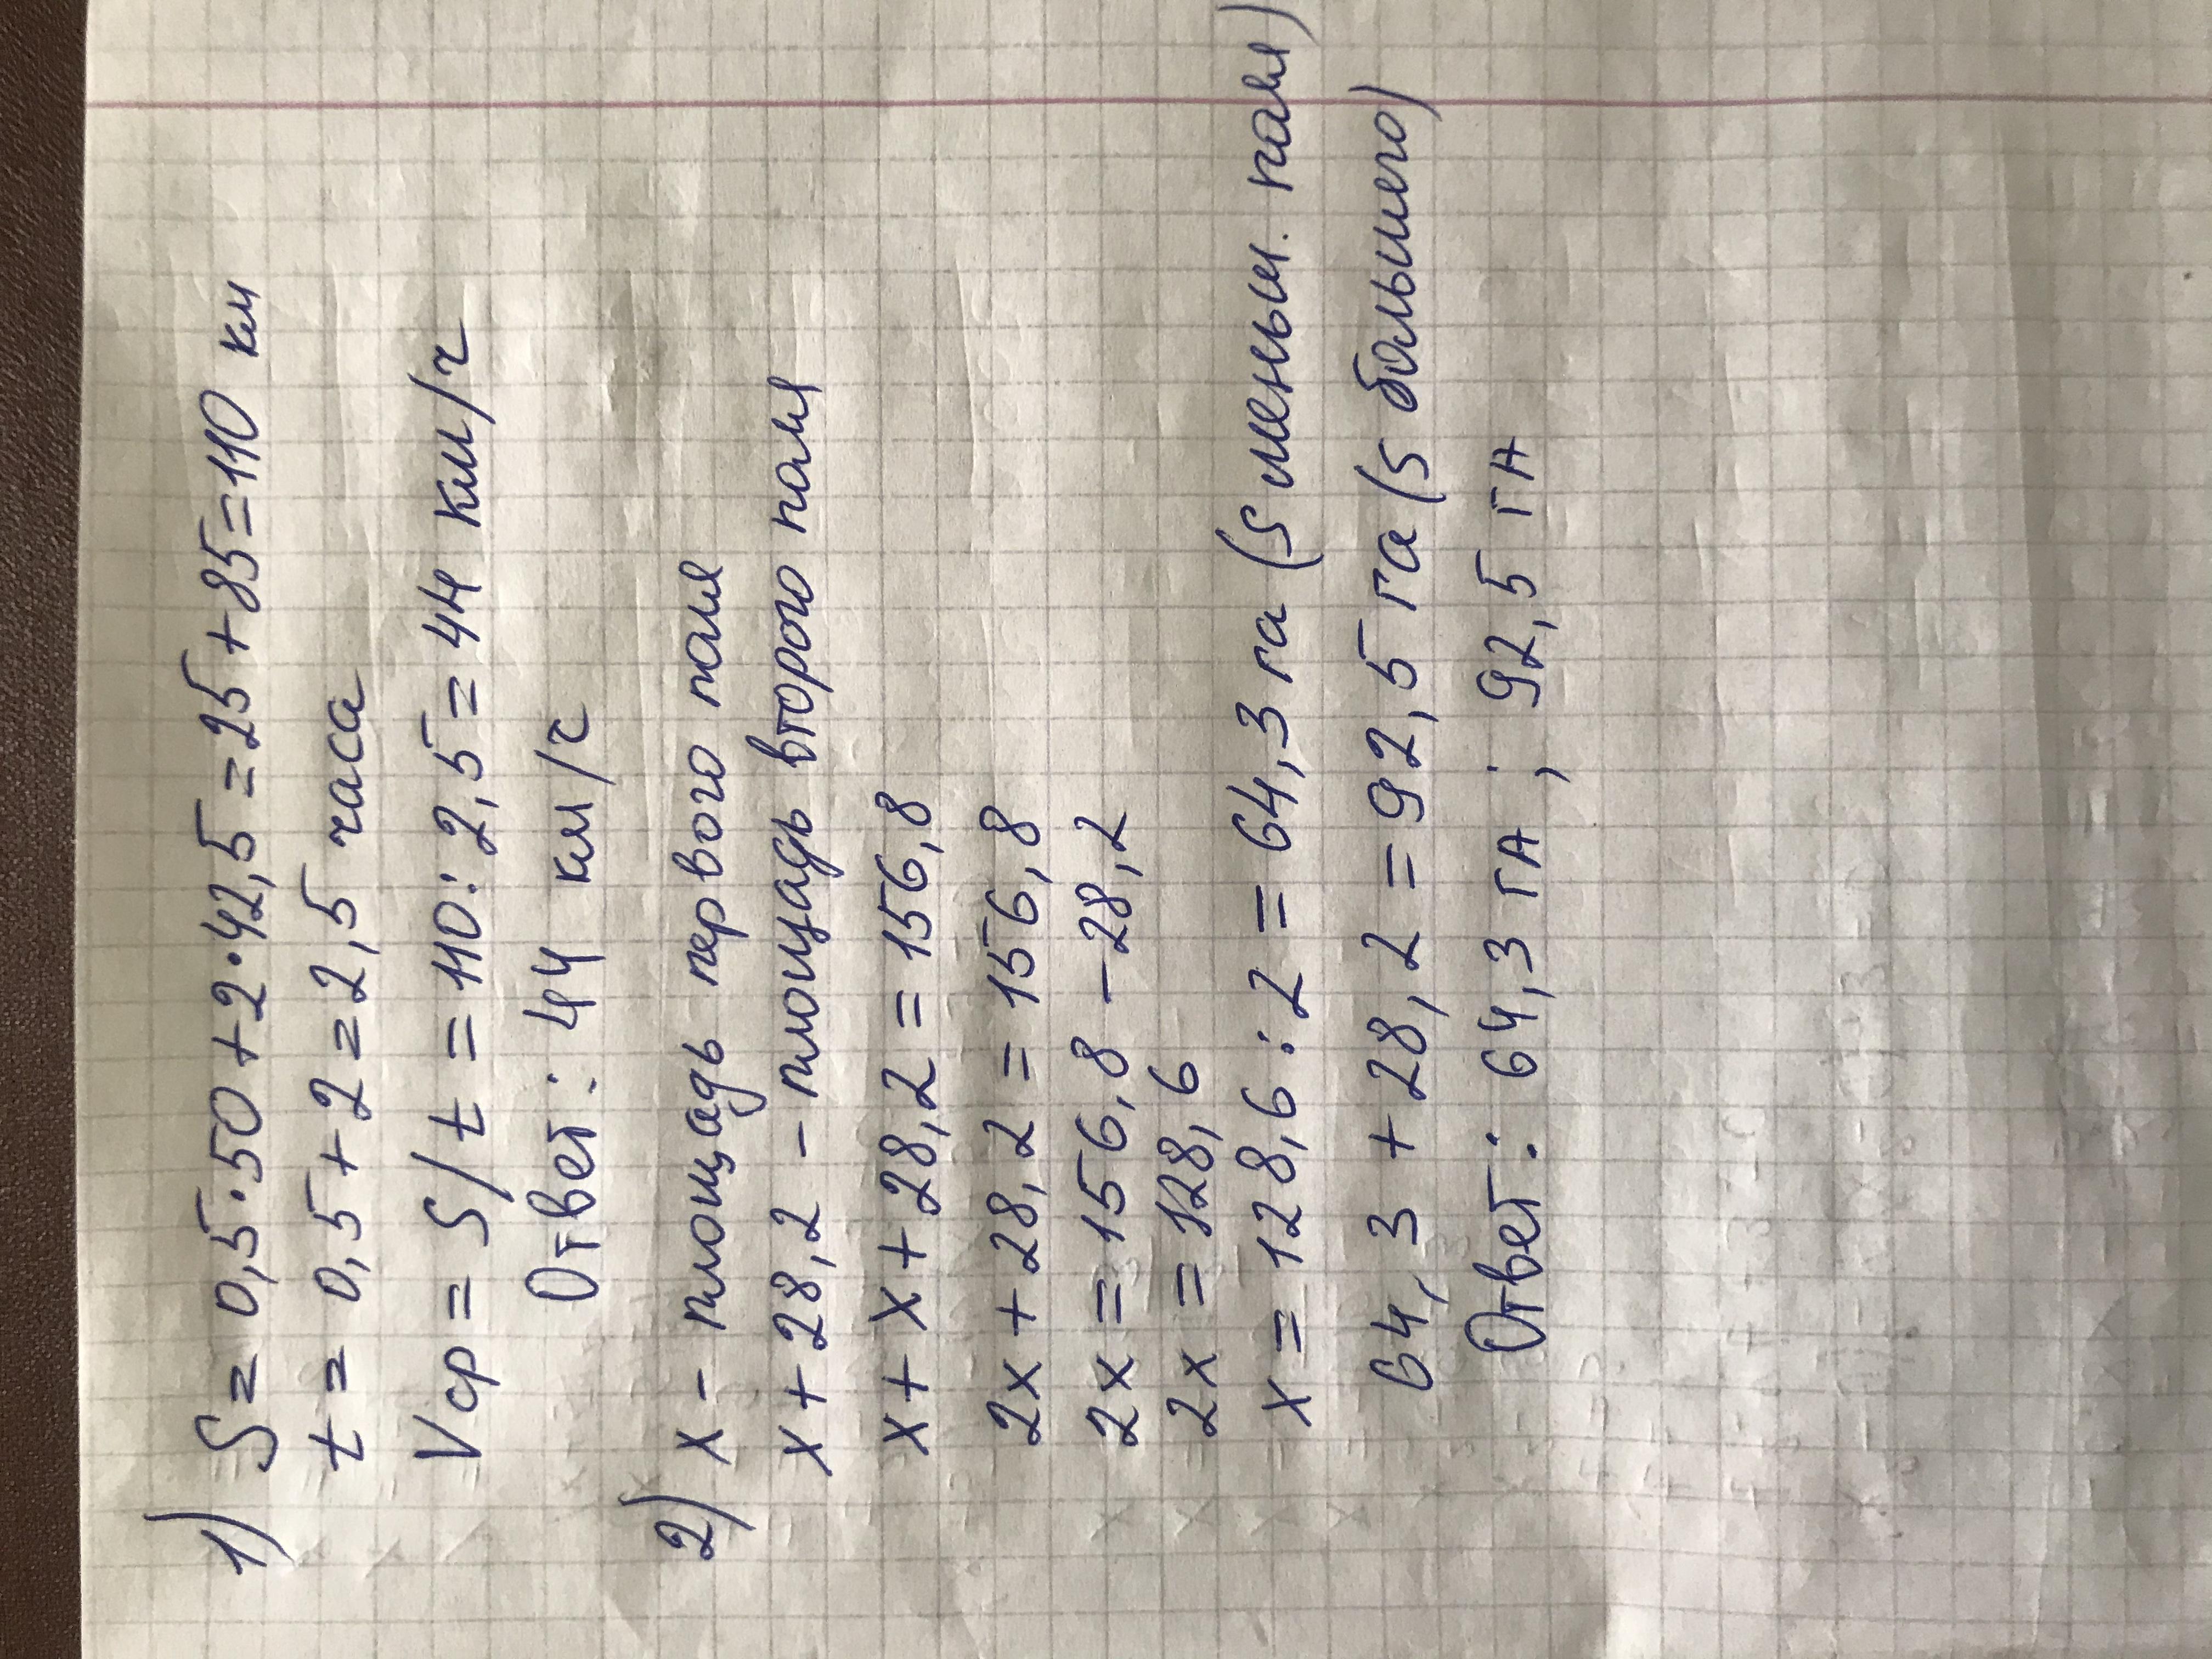 1) S = 0,5·50 + 2·42,5 = 25 + 85 = 110 км
t = 0,5 + 2 = 2,5 часа
Vср = S/t = 110 : 2,5 = 44 км/ч
Ответ: 44 км/ч
2) х - площадь первого поля
х + 28,2 - площадь второго поля
х + х + 28,2 = 156,8
2х + 28,2 = 156,8
2х = 156,8 - 28,2
2х = 128,6
х = 128,6 : 2 = 64,3 га (S меньш. поля)
64,3 + 28,2 = 92,5 га (S большего)
Ответ: 64,3 га ; 92,5 га